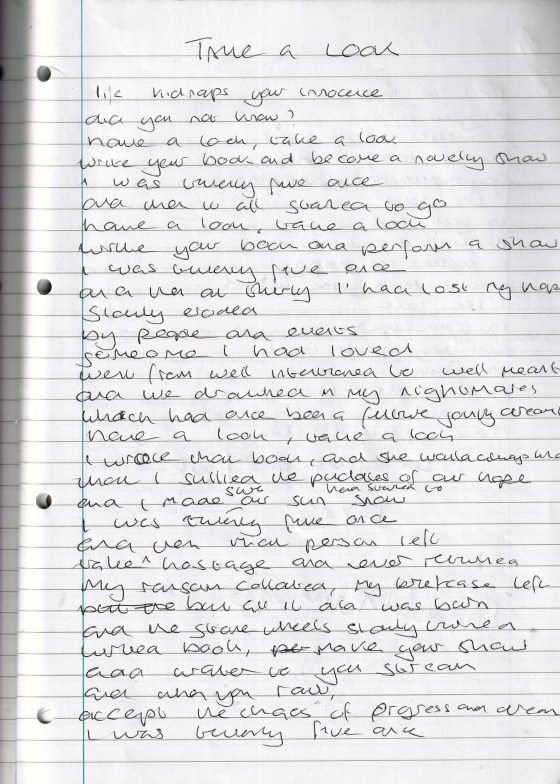 Take a Look
life kidnaps your innocence
did you not know?
have a look, take a look
write your book and become a novelty show
I was twenty five once
and then it all started to go
have a look, take a look
write your book and perform a show
I was twenty five once
and then at thirty I'had lost my hope
slowly eroded
by people and events
someone I had loved
went from well intentioned to well meant
and we drowned in my nightmares
which had once been a future
have a look, take a look
I wrote that book, and she would always
that I sullied the puddles of our hope
and I made sure our sun snow
have started to
I was twenty five once
and then that person left
take hostage and never returned
My ransom collated, my briefcase left
but all it did was burn
and the stone wheels slowly turned
book, make your show
add water to your stream
and when you
accept the chaos of progress and dream
I was twenty five once